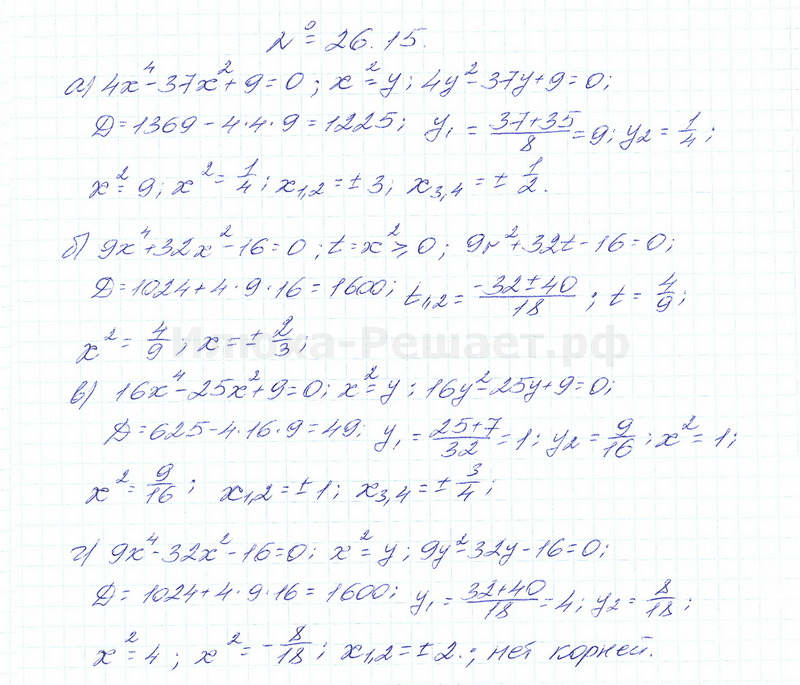 № 26.15.
а) 4x⁴-37x²+9=0; x²=y; 4y²-37y+9=0;
Д=1369-4·4·9=1225; y₁=(37+35)/8=9; y₂=1/4;
x²=9; x²=1/4; x₁,₂=±3; x₃,₄=±1/2.
б) 9x⁴+32x²-16=0; t=x²≥0; 9t²+32t-16=0;
Д=1024+4·9·16=1600; t₁,₂=(-32±40)/18; t=4/9;
x²=4/9; x=±2/3;
Илюха-Решает.рф
в) 16x⁴-25x²+9=0; x²=y; 16y²-25y+9=0;
Д=625-4·16·9=49; y₁=(25+7)/32=1; y₂=9/16; x²=1;
x²=9/16; x₁,₂=±1; x₃,₄=±3/4;
г) 9x⁴-32x²-16=0; x²=y; 9y²-32y-16=0;
Д=1024+4·9·16=1600; y₁=(32+40)/18=4; y₂=8/18;
x²=4; x²=-8/18; x₁,₂=±2.; нет корней.